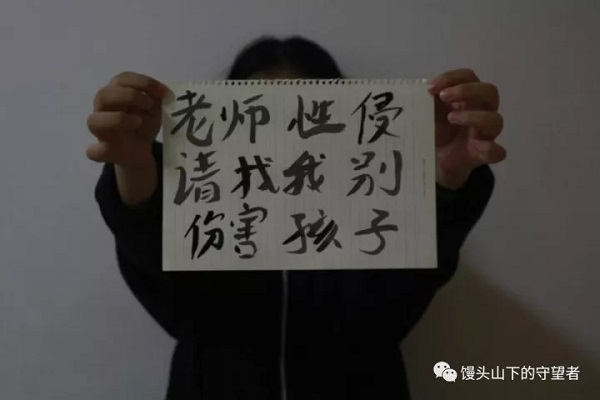 老师性侵
请找我别
伤害孩子
馒头山下的守望者